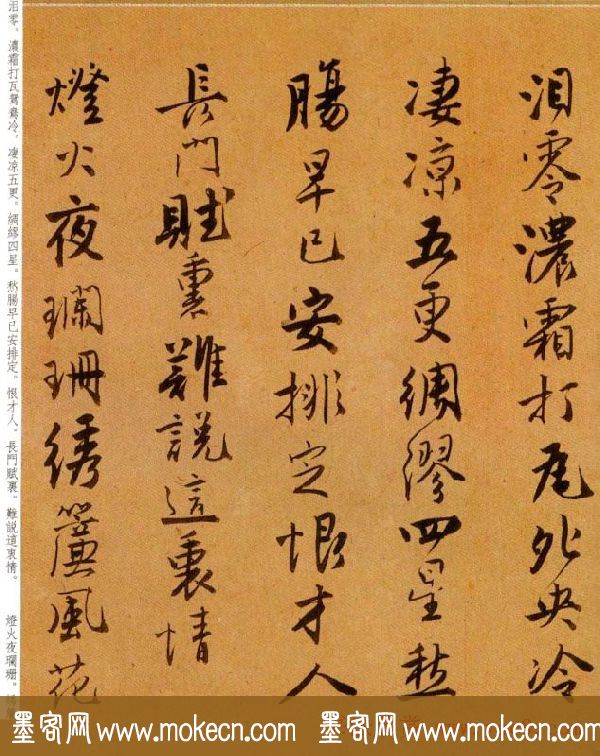 泪零濃霜打瓦死央冷
凄凉五更綢繆四星愁
腸早已安排定恨才人
長門賦裏難説這衷情
燈火夜瓓珊綉簾風花
泪零。濃霜打瓦鴛鴦冷。凄凉五更。綢繆四星。愁腸早已安排定。恨才人。長門賦裏。難説這衷情。 燈火夜瓓珊。
墨客网 www.mokecn.com 墨客网 www.mokecn.com